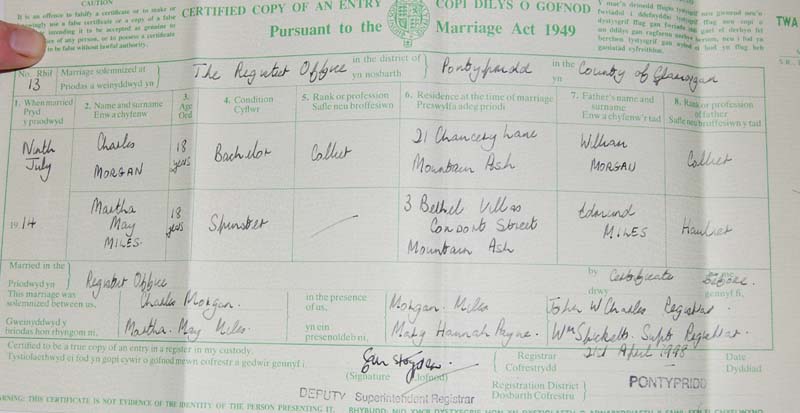 CAUTION
It is an offence to falsify a certificate or to make or
knowingly use a false certificate or a copy of a false
certificate intending it to be accepted as genuine to
the prejudice of any person, or to possess a certificate
knowing it to be false without lawful authority.
CERTIFIED COPY OF AN ENTRY
COPI DILYS O GOFNOD
Pursuant to the Marriage Act 1949
No. Rhif 13
Marriage solemnized at The Register Office in the district of Pontypridd in the County of Glamorgan
Priodas a weinyddwyd yn yn nosbarth yn
1. When married
Pryd y priodwyd
2. Name and surname
Enw a chyfenw
3. Age
Oed
4. Condition
Cyflwr
5. Rank or profession
Safle neu broffesiwn
6. Residence at the time of marriage
Preswylfa adeg priodi
7. Father's name and surname
Enw a chyfenw'r tad
8. Rank or profession of father
Safle neu broffesiwn y tad
Ninth July
Charles MORGAN
18 years
Bachelor
Collier
21 Chancery Lane
Mountain Ash
William MORGAN
Collier
1914
Martha May MILES
18 years
Spinster
3 Bethel Villas
Condont Street
Mountain Ash
Edmund MILES
Haulier
Married in the Register Office by Certificate before,
Priodwyd yn drwy gennyf fi,
This marriage was solemnized between us,
Charles Morgan.
in the presence of us,
Morgan Miles
John W Charles Registrar
Gweinyddwyd y briodas hon rhyngom ni,
Martha May Miles
yn ein presenoldeb ni,
Mary Hannah Payne.
Wm Spickett Supt Registrar.
Certified to be a true copy of an entry in a register in my custody.
Tystiolaethwyd ei fod yn gopi cywir o gofnod mewn cofrestr a gedwir gennyf i.
(Signature Llofnod)
Registrar
Cofrestrydd
21st April 1998
Date
Dyddiad
DEPUTY Superintendent Registrar
Registration District
Dosbarth Cofrestru
PONTYPRIDD
WARNING: THIS CERTIFICATE IS NOT EVIDENCE OF THE IDENTITY OF THE PERSON PRESENTING IT.